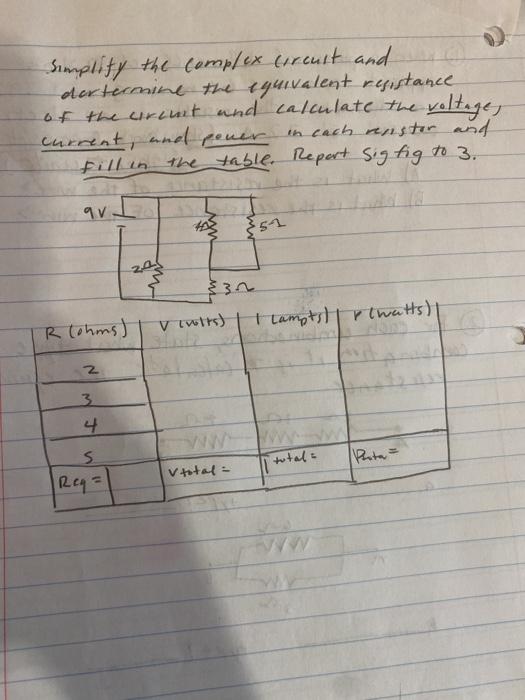 Simplify the complex circuit and
dertermine the equivalent resistance
of the circuit and calculate the voltage,
current, and power in each resistor and
Fill in the table. Report Sig fig to 3.
9V
5Ω
2Ω
3Ω
R (ohms) V (volts) I (ampts) P (watts)
2
3
4
5
Req = V total = I total =